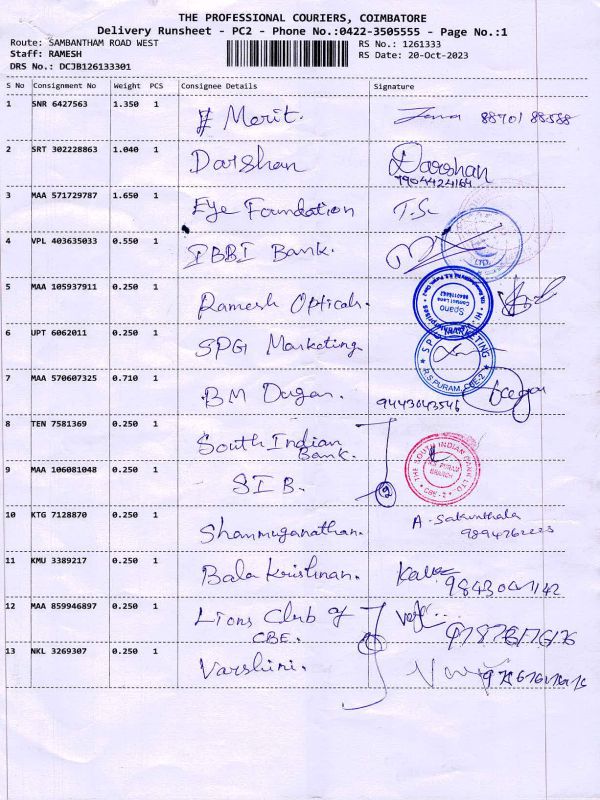 THE PROFESSIONAL COURIERS, COIMBATORE
Delivery Runsheet - PC2 - Phone No.:0422-3505555 - Page No.:1
Route: SAMBANTHAM ROAD WEST RS No.: 1261333
Staff: RAMESH RS Date: 20-Oct-2023
DRS No.: DCJB126133301
S No Consignment No Weight PCS Consignee Details Signature
1 SNR 6427563 1.350 1 Merit. 88701 88588
2 SRT 302228863 1.040 1 Darshan Darshan
7904424164
3 MAA 571729787 1.650 1 Eye Foundation T.Sc
4 VPL 403635033 0.550 1 IBBI Bank.
LTD.
5 MAA 105937911 0.250 1 Ramesh Opticals.
Spano
Contact Lens
6 UPT 6062011 0.250 1 SPG Marketing
SP MARKETING
R.S PURAM, CBE-2
7 MAA 570607325 0.710 1 BM Dugan. 9443043546
8 TEN 7581369 0.250 1 South Indian
Bank.
THE SOUTH INDIAN BANK LTD.
RS PURAM
BRANCH
CBE-2
9 MAA 106081048 0.250 1 SIB. 2
10 KTG 7128870 0.250 1 Shanmuganathan. A. Sakunthala
11 KMU 3389217 0.250 1 Bala Krishnan.
12 MAA 859946897 0.250 1 Lions Club of
CBE.
13 NKL 3269307 0.250 1 Varshini.